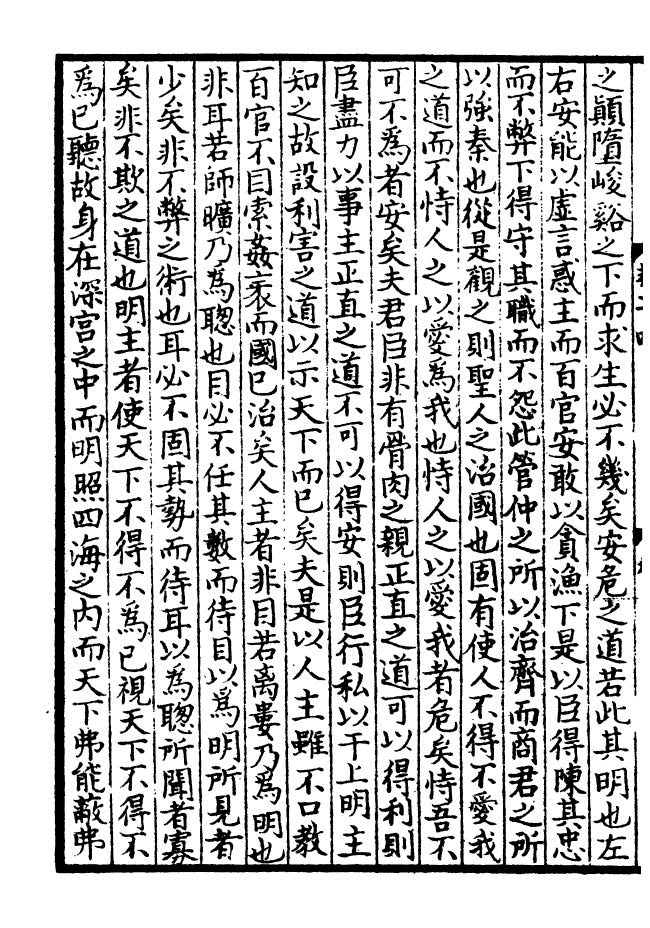 之顛墮峻谿之下而求生必不幾矣安危之道若此其明也左
右安能以虛言惑主而百官安敢以貪漁下是以臣得陳其忠
而不弊下得守其職而不怨此管仲之所以治齊而商君之所
以強秦也從是觀之則聖人之治國也固有使人不得不愛我
之道而不恃人之以愛為我也恃人之以愛我者危矣恃吾不
可不爲者安矣夫君臣非有骨肉之親正直之道可以得利則
臣盡力以事主正直之道不可以得安則臣行私以干上明主
知之故設利害之道以示天下而已矣夫是以人主雖不口教
百官不目索姦衺而國已治矣人主者非目若离婁乃爲明也
非耳若師曠乃爲聰也目必不任其數而待目以爲明所見者
少矣非不弊之術也耳必不固其勢而待耳以爲聰所聞者寡
矣非不欺之道也明主者使天下不得不為己視天下不得不
爲己聽故身在深宮之中而明照四海之內而天下弗能蔽弗